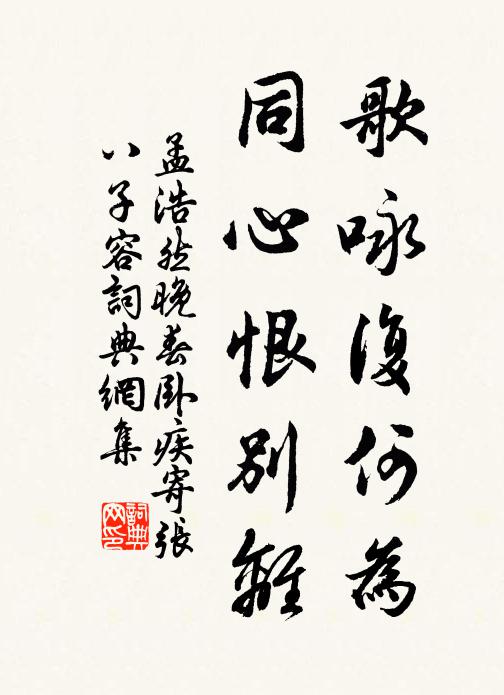 歌咏復何為
同心恨別離
孟浩然晚春卧疾寄張
八子容詞典網集
詞典
网印